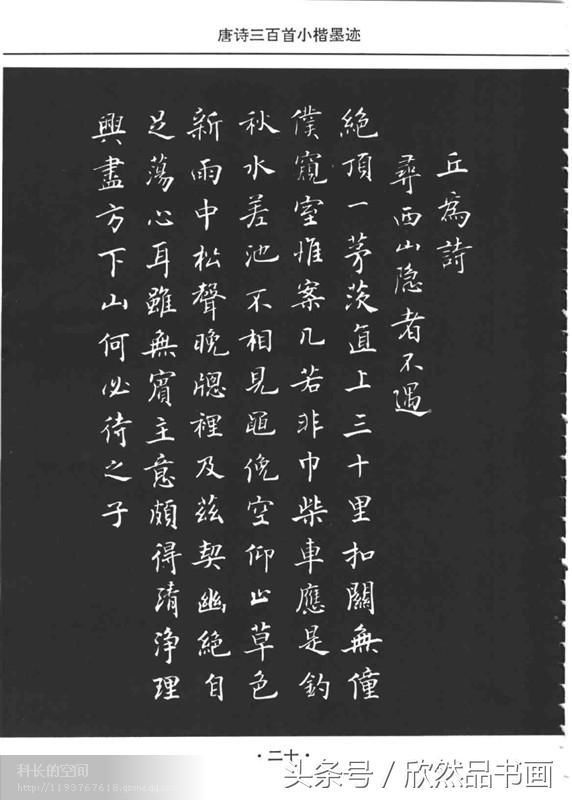 唐诗三百首小楷墨迹
丘為詩
尋西山隐者不遇
絶頂一茅茨直上三十里扣關無僮
僕窺室惟案几若非巾柴車應是釣
秋水差池不相見黽俛空仰止草色
新雨中松聲晚牕裡及茲契幽絶自
足蕩心耳雖無賓主意頗得清淨理
興盡方下山何必待之子
·二十·
科长的空间
头条号／欣然品书画